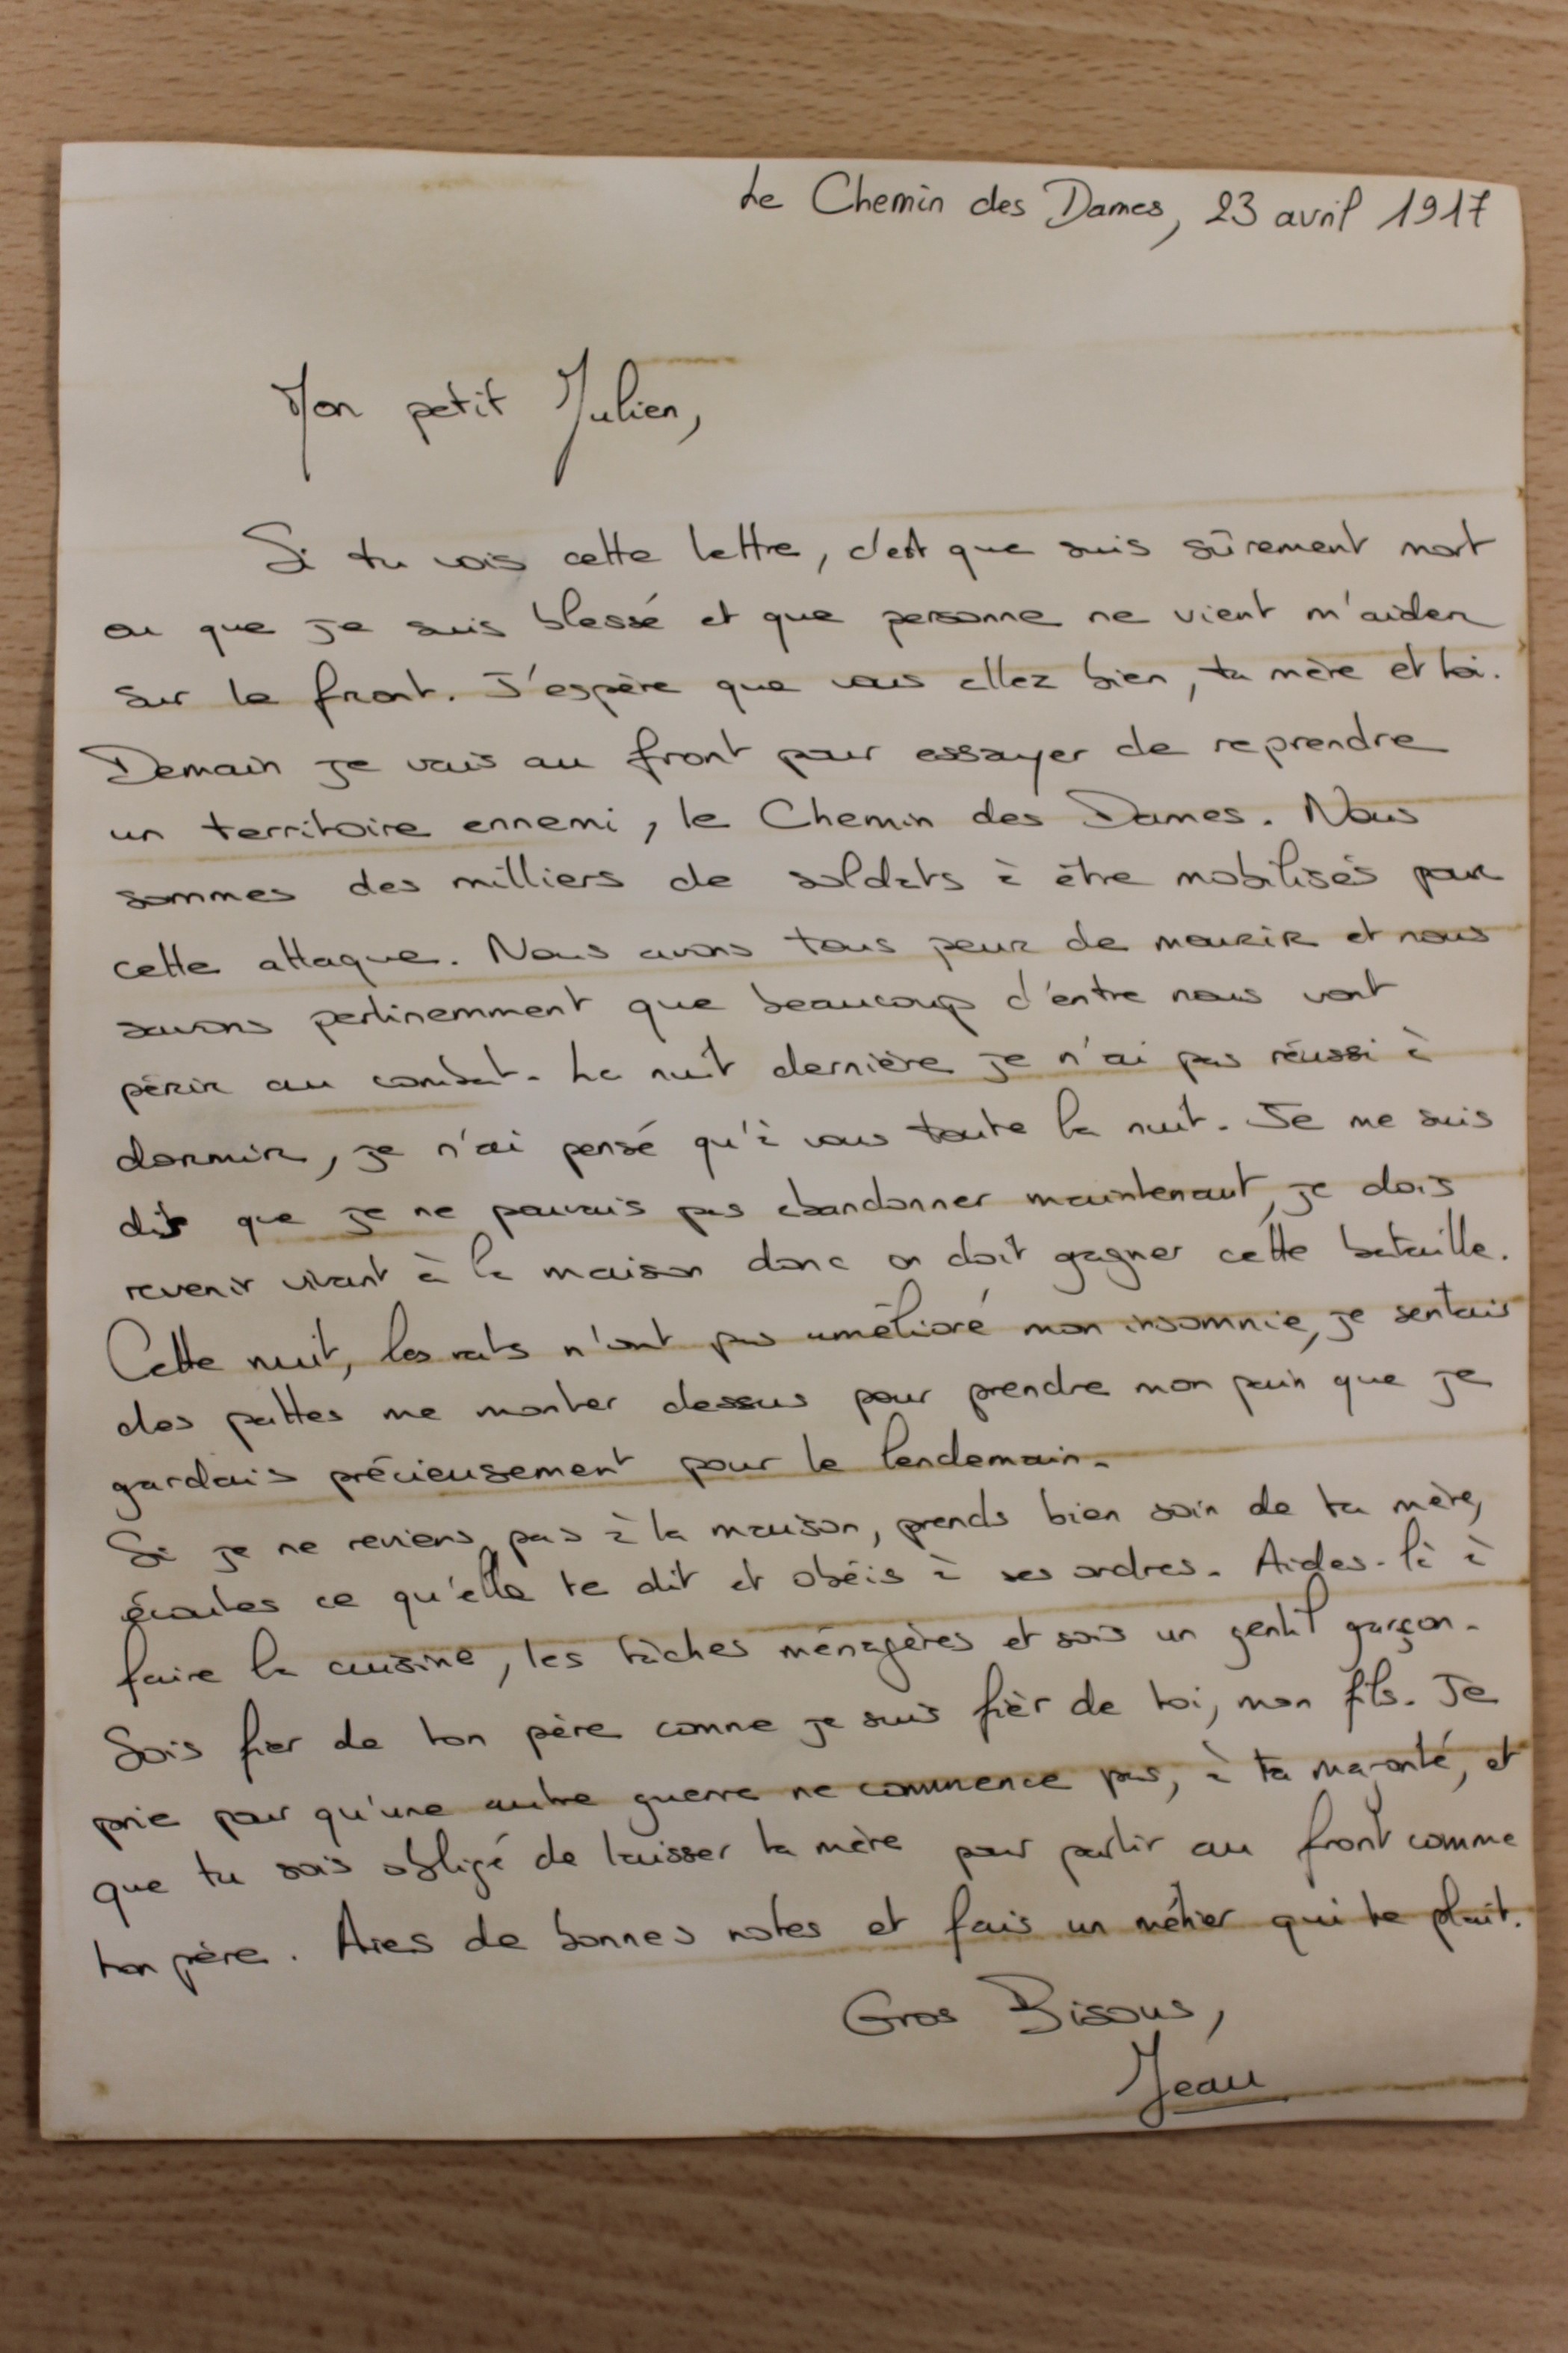 Le Chemin des Dames, 23 avril 1917
Mon petit Julien,
Si tu vois cette lettre, c'est que suis sûrement mort
ou que je suis blessé et que personne ne vient m'aider
sur le front. J'espère que vous allez bien, ta mère et toi.
Demain je vais au front pour essayer de reprendre
un territoire ennemi, le Chemin des Dames. Nous
sommes des milliers de soldats à être mobilisés pour
cette attaque. Nous avons tous peur de mourir et nous
savons pertinemment que beaucoup d'entre nous vont
périr au combat. La nuit dernière je n'ai pas réussi à
dormir, je n'ai pensé qu'à vous toute la nuit. Je me suis
dit que je ne pouvais pas abandonner maintenant, je dois
revenir vivant à la maison donc on doit gagner cette bataille.
Cette nuit, les rats n'ont pas amélioré mon insomnie, je sentais
des pattes me monter dessus pour prendre mon pain que je
gardais précieusement pour le lendemain.
Si je ne reviens pas à la maison, prends bien soin de ta mère,
écoutes ce qu'elle te dit et obéis à ses ordres. Aides-là à
faire la cuisine, les tâches ménagères et sois un gentil garçon.
Sois fier de ton père comme je suis fièr de toi, mon fils. Je
prie pour qu'une autre guerre ne commence pas, à ta majorité, et
que tu sois obligé de laisser ta mère pour partir au front comme
ton père. Aies de bonnes notes et fais un métier qui te plait.
Gros Bisous,
Jean